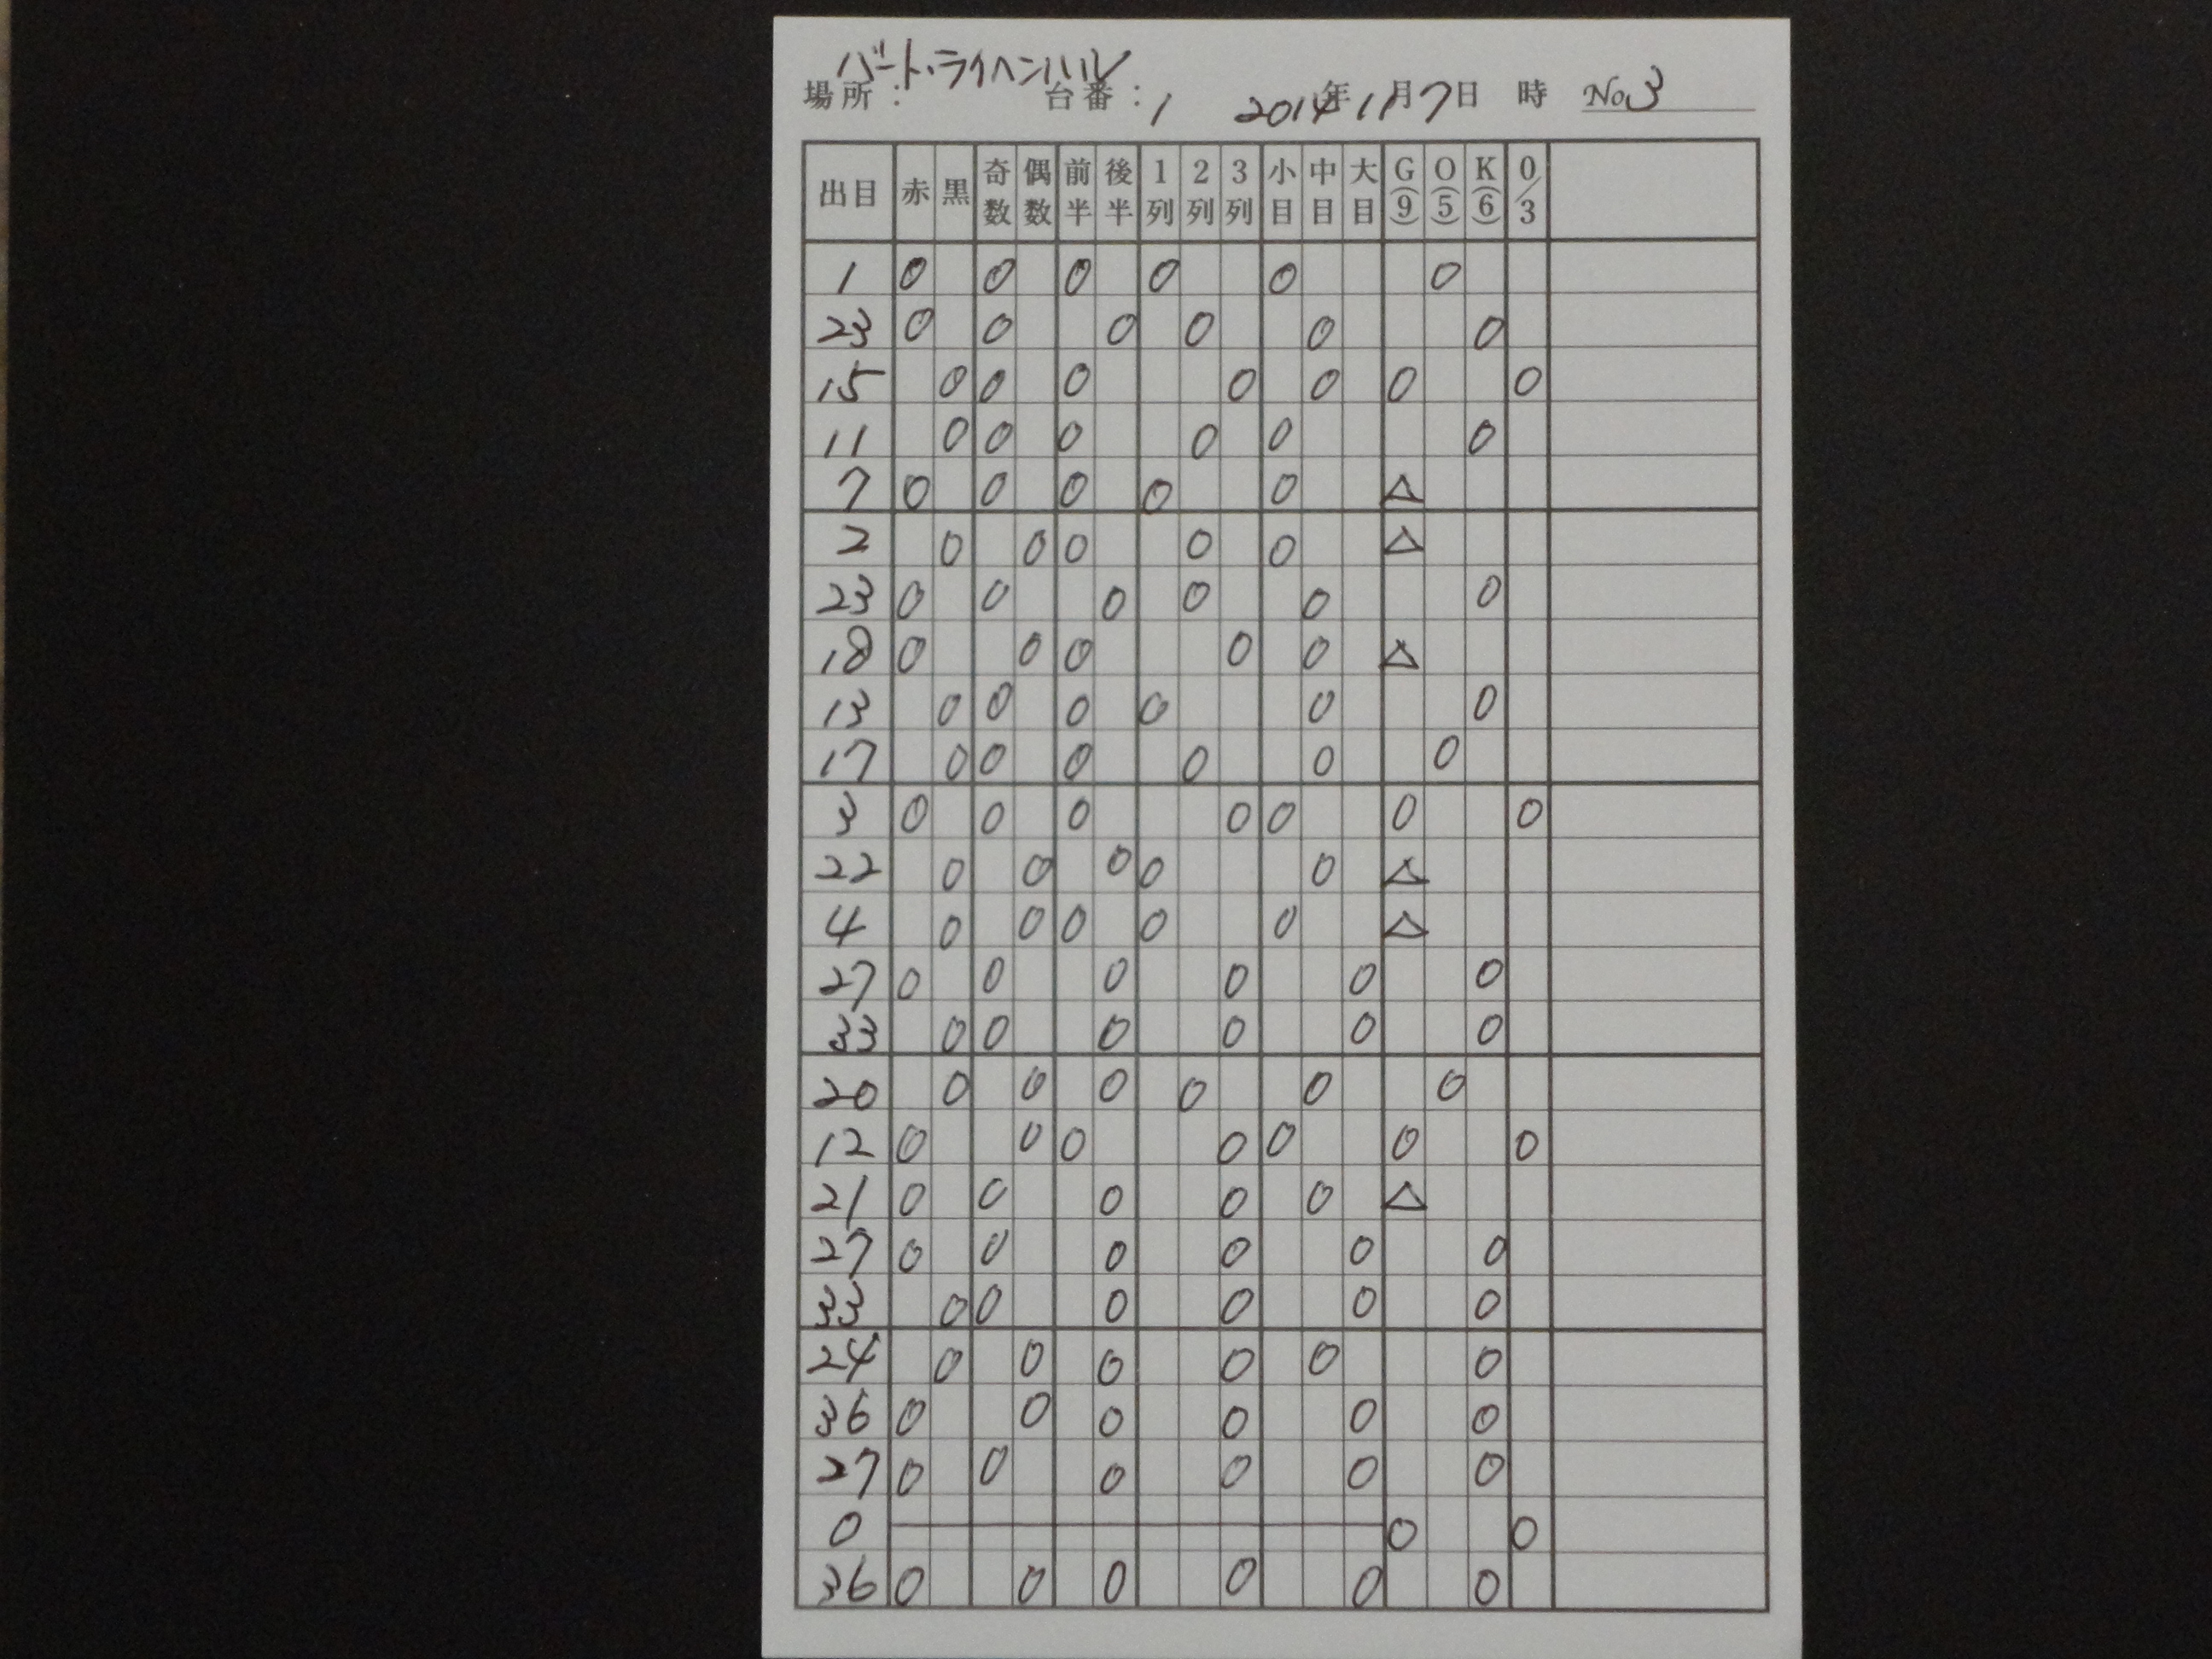 バート・ライヘンハル
場所: 台番: 1 2014年11月7日 時 No 3
出目 赤 黒 奇数 偶数 前半 後半 1列 2列 3列 小目 中目 大目 G(9) O(5) K(6) 0/3
1 0 0 0 0 0 0
23 0 0 0 0 0 0
15 0 0 0 0 0 0 0
11 0 0 0 0 0 0
7 0 0 0 0 0 △
2 0 0 0 0 0 △
23 0 0 0 0 0 0
18 0 0 0 0 0 △
13 0 0 0 0 0 0
17 0 0 0 0 0 0
3 0 0 0 0 0 0 0
22 0 0 0 0 0 △
4 0 0 0 0 0 △
27 0 0 0 0 0 0
33 0 0 0 0 0 0
20 0 0 0 0 0 0
12 0 0 0 0 0 0 0
21 0 0 0 0 0 △
27 0 0 0 0 0 0
33 0 0 0 0 0 0
24 0 0 0 0 0 0
36 0 0 0 0 0 0
27 0 0 0 0 0 0
0 0 0
36 0 0 0 0 0 0